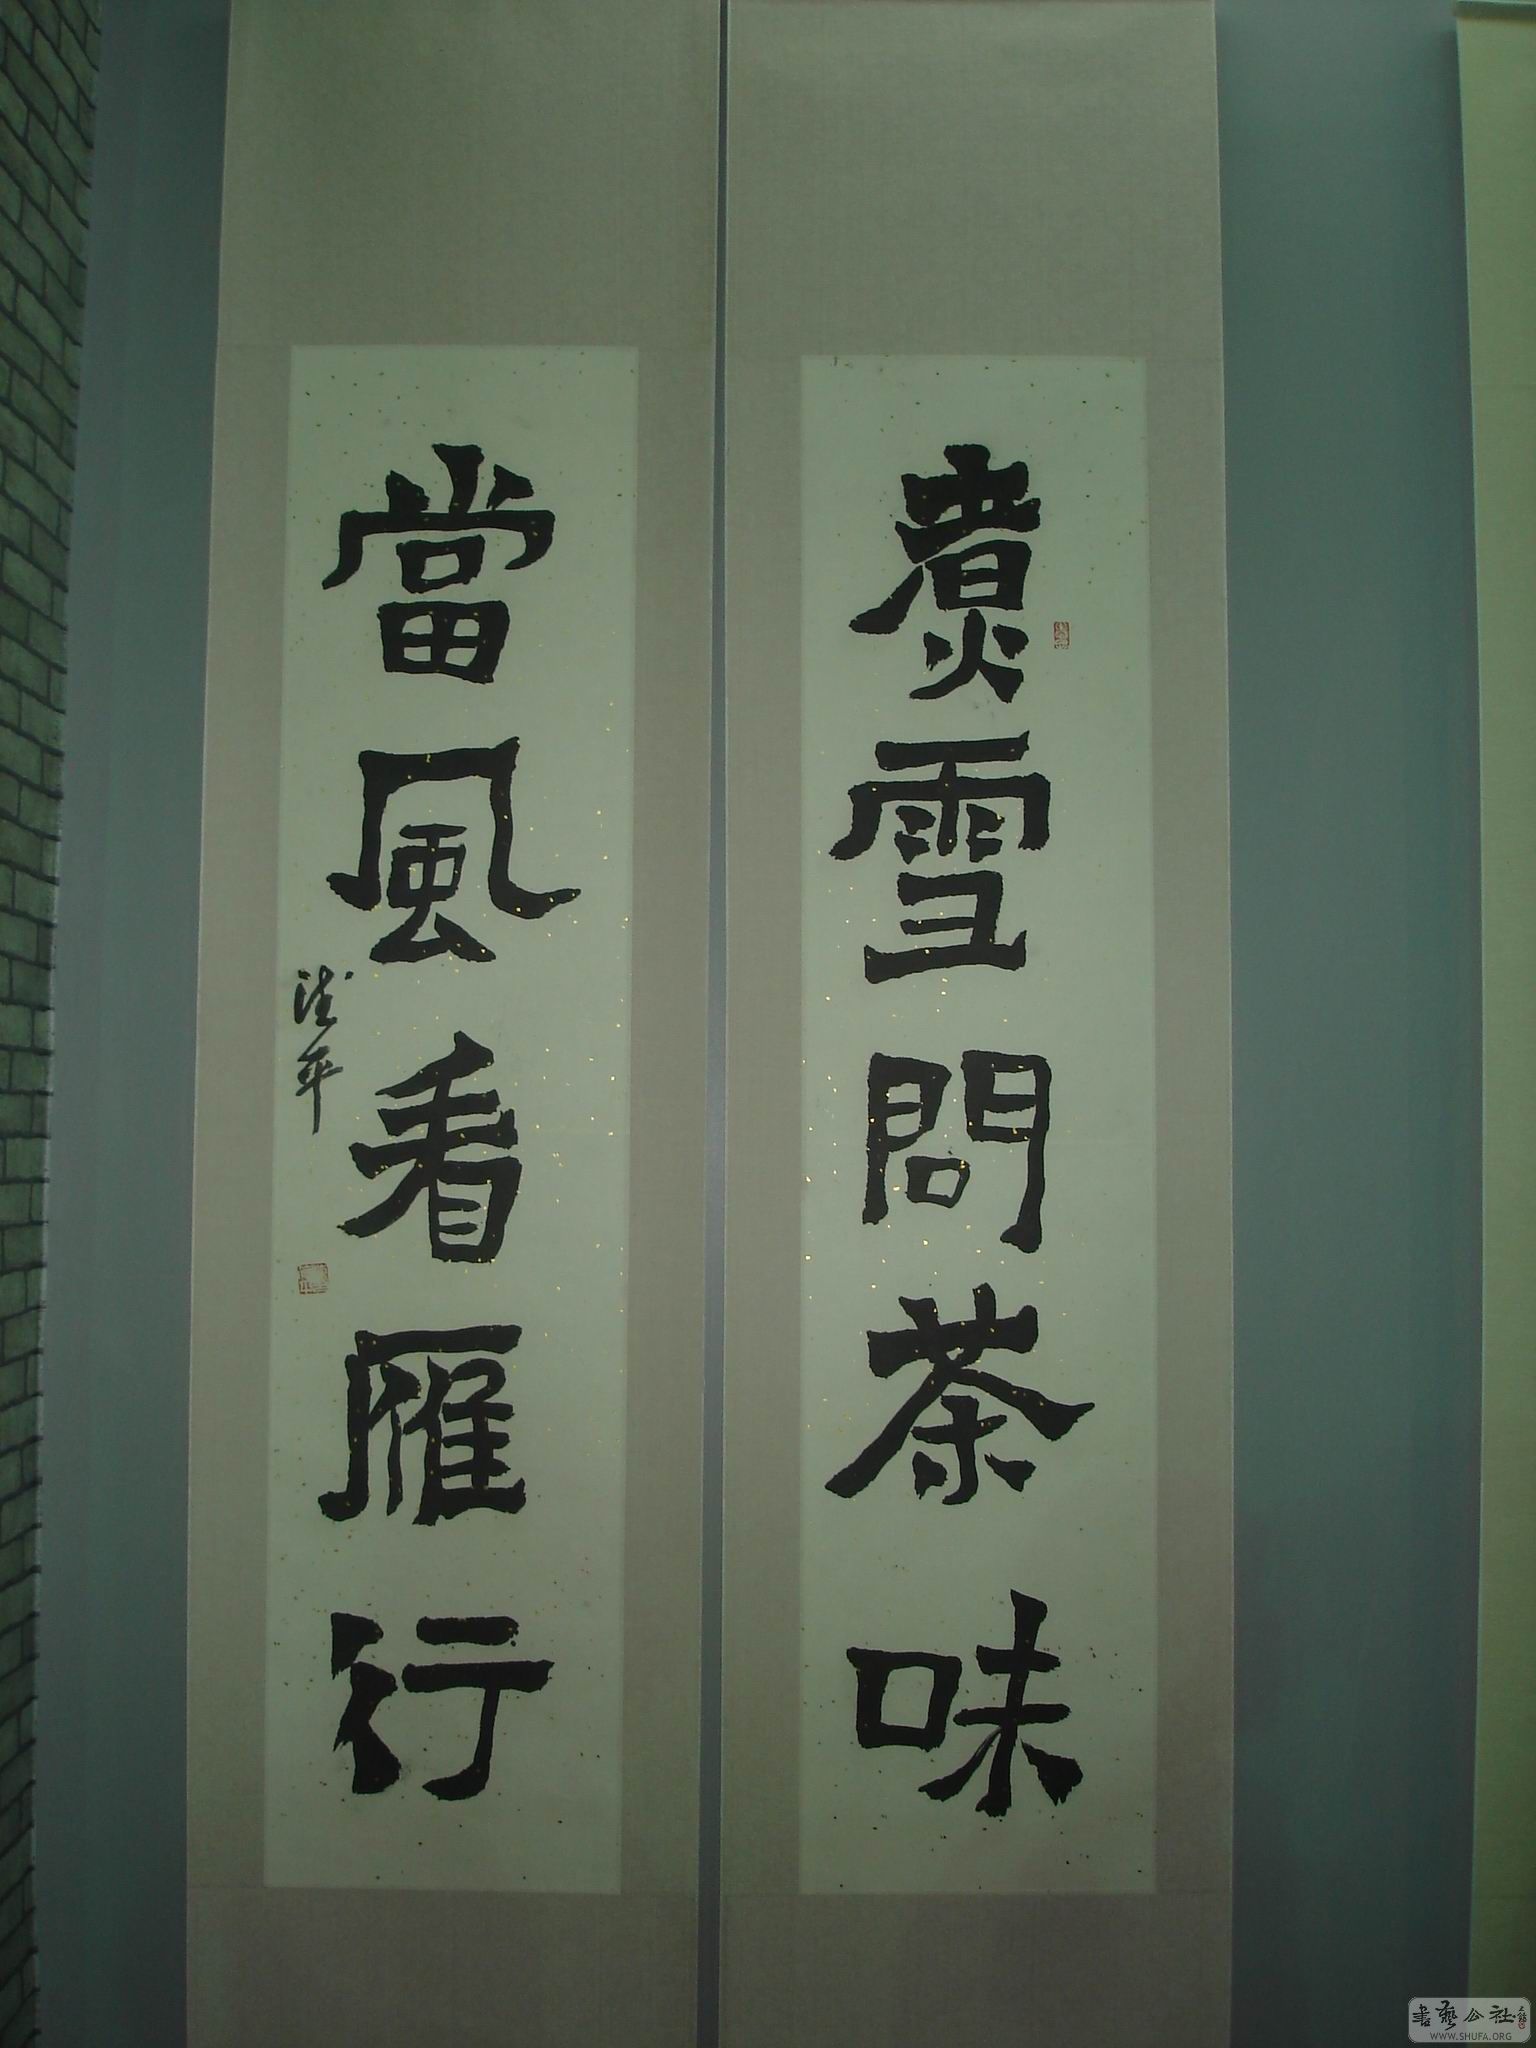 煮雪問茶味
當風看雁行
書藝公社
WWW.SHUFA.ORG